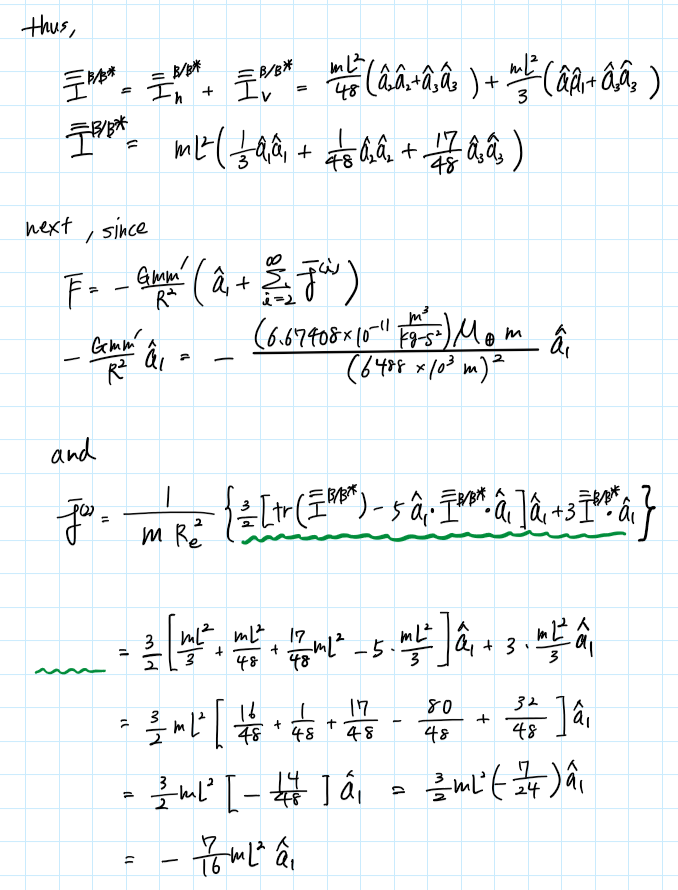 thus,
I̿^{B/B*} = I̿_h^{B/B*} + I̿_v^{B/B*} = mL²/48 (â₂â₂ + â₃â₃) + mL²/3 (â₁â₁ + â₃â₃)
I̿^{B/B*} = mL² (1/3 â₁â₁ + 1/48 â₂â₂ + 17/48 â₃â₃)
next, since
F̄ = - Gmm'/R² (â₁ + Σ_{i=2}^{∞} f̄^{(i)})
- Gmm'/R² â₁ = - (6.67408×10⁻¹¹ m³/kg-s²) M_⊕ m / (6488 ×10³ m)² â₁
and
f̄^{(2)} = 1/(m R_e²) { 3/2 [tr(I̿^{B/B*}) - 5 â₁·I̿^{B/B*}·â₁] â₁ + 3 I̿^{B/B*}·â₁ }
= 3/2 [mL²/3 + mL²/48 + 17/48 mL² - 5·mL²/3] â₁ + 3·mL²/3 â₁
= 3/2 mL² [16/48 + 1/48 + 17/48 - 80/48 + 32/48] â₁
= 3/2 mL² [- 14/48] â₁ = 3/2 mL² (-7/24) â₁
= - 7/16 mL² â₁